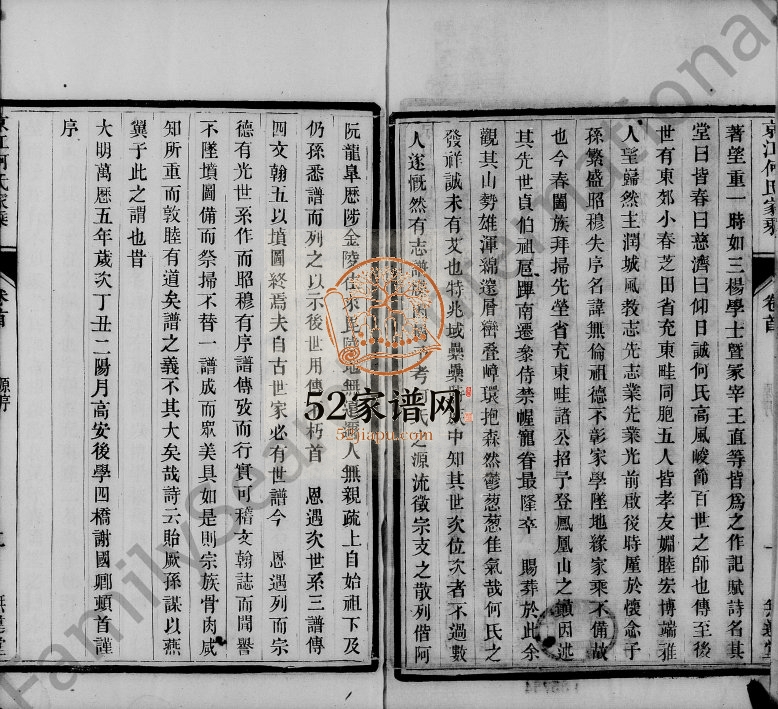 東江何氏家乘
卷首
著望重一時如三楊學士暨冢宰王直等皆爲之作記賦詩名其
堂曰皆春曰慈濟曰仰日誠何氏高風峻節百世之師也傳至後
世有東郊小春芝田省充東畦同胞五人皆孝友婣睦宏博端雅
人望歸然主潤城風教志先志業先業光前啟後時厪於懷念子
孫繁盛昭穆失序名諱無倫祖德不彰家學墜地緣家乘不備故
也今春闔族拜掃先塋省充東畦諸公招予登鳳凰山之巔因述
其先世貞伯祖扈蹕南遷叅侍禁幄寵眷最隆卒 賜葬於此余
觀其山勢雄渾綿邈層巒叠嶂環抱森然鬱葱葱佳氣哉何氏之
發祥誠未有艾也特兆域纍纍 中知其世次位次者不過數
人遂慨然有志譜 考何氏之源流徵宗支之散列偕阿
阮龍皐歷陟金陵 地無 人無親疏上自始祖下及
仍孫悉譜而列之以示後世用傳 朽首 恩遇次世系三譜傳
四文翰五以墳圖終焉夫自古世家必有世譜今 恩遇列而宗
德有光世系作而昭穆有序譜傳攷而行實可稽文翰誌而聞譽
不墜墳圖備而祭掃不替一譜成而眾美具如是則宗族骨肉咸
知所重而敦睦有道矣譜之義不其大矣哉詩云貽厥孫謀以燕
翼子此之謂也昔
大明萬歷五年歲次丁丑二陽月高安後學四橋謝國卿頓首謹
序
卷首
源序
52家谱网
52jiapu.com
FamilySearch International